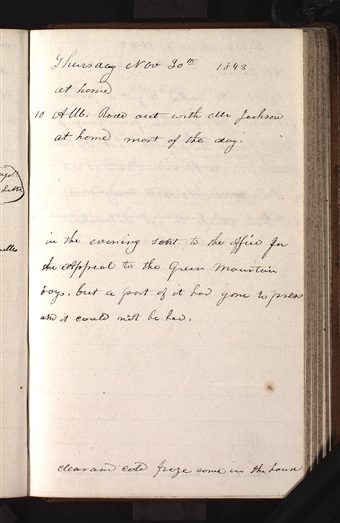 Thursday Nov 30th 1843
at home
10 AM. Rode out with Mr Jackson
at home most of the day.
in the evening sent to the office for
the Appeal to the Green Mountain
boys. but a part of it had gone to press
and it could not be had.
clear and cold froze some in the house